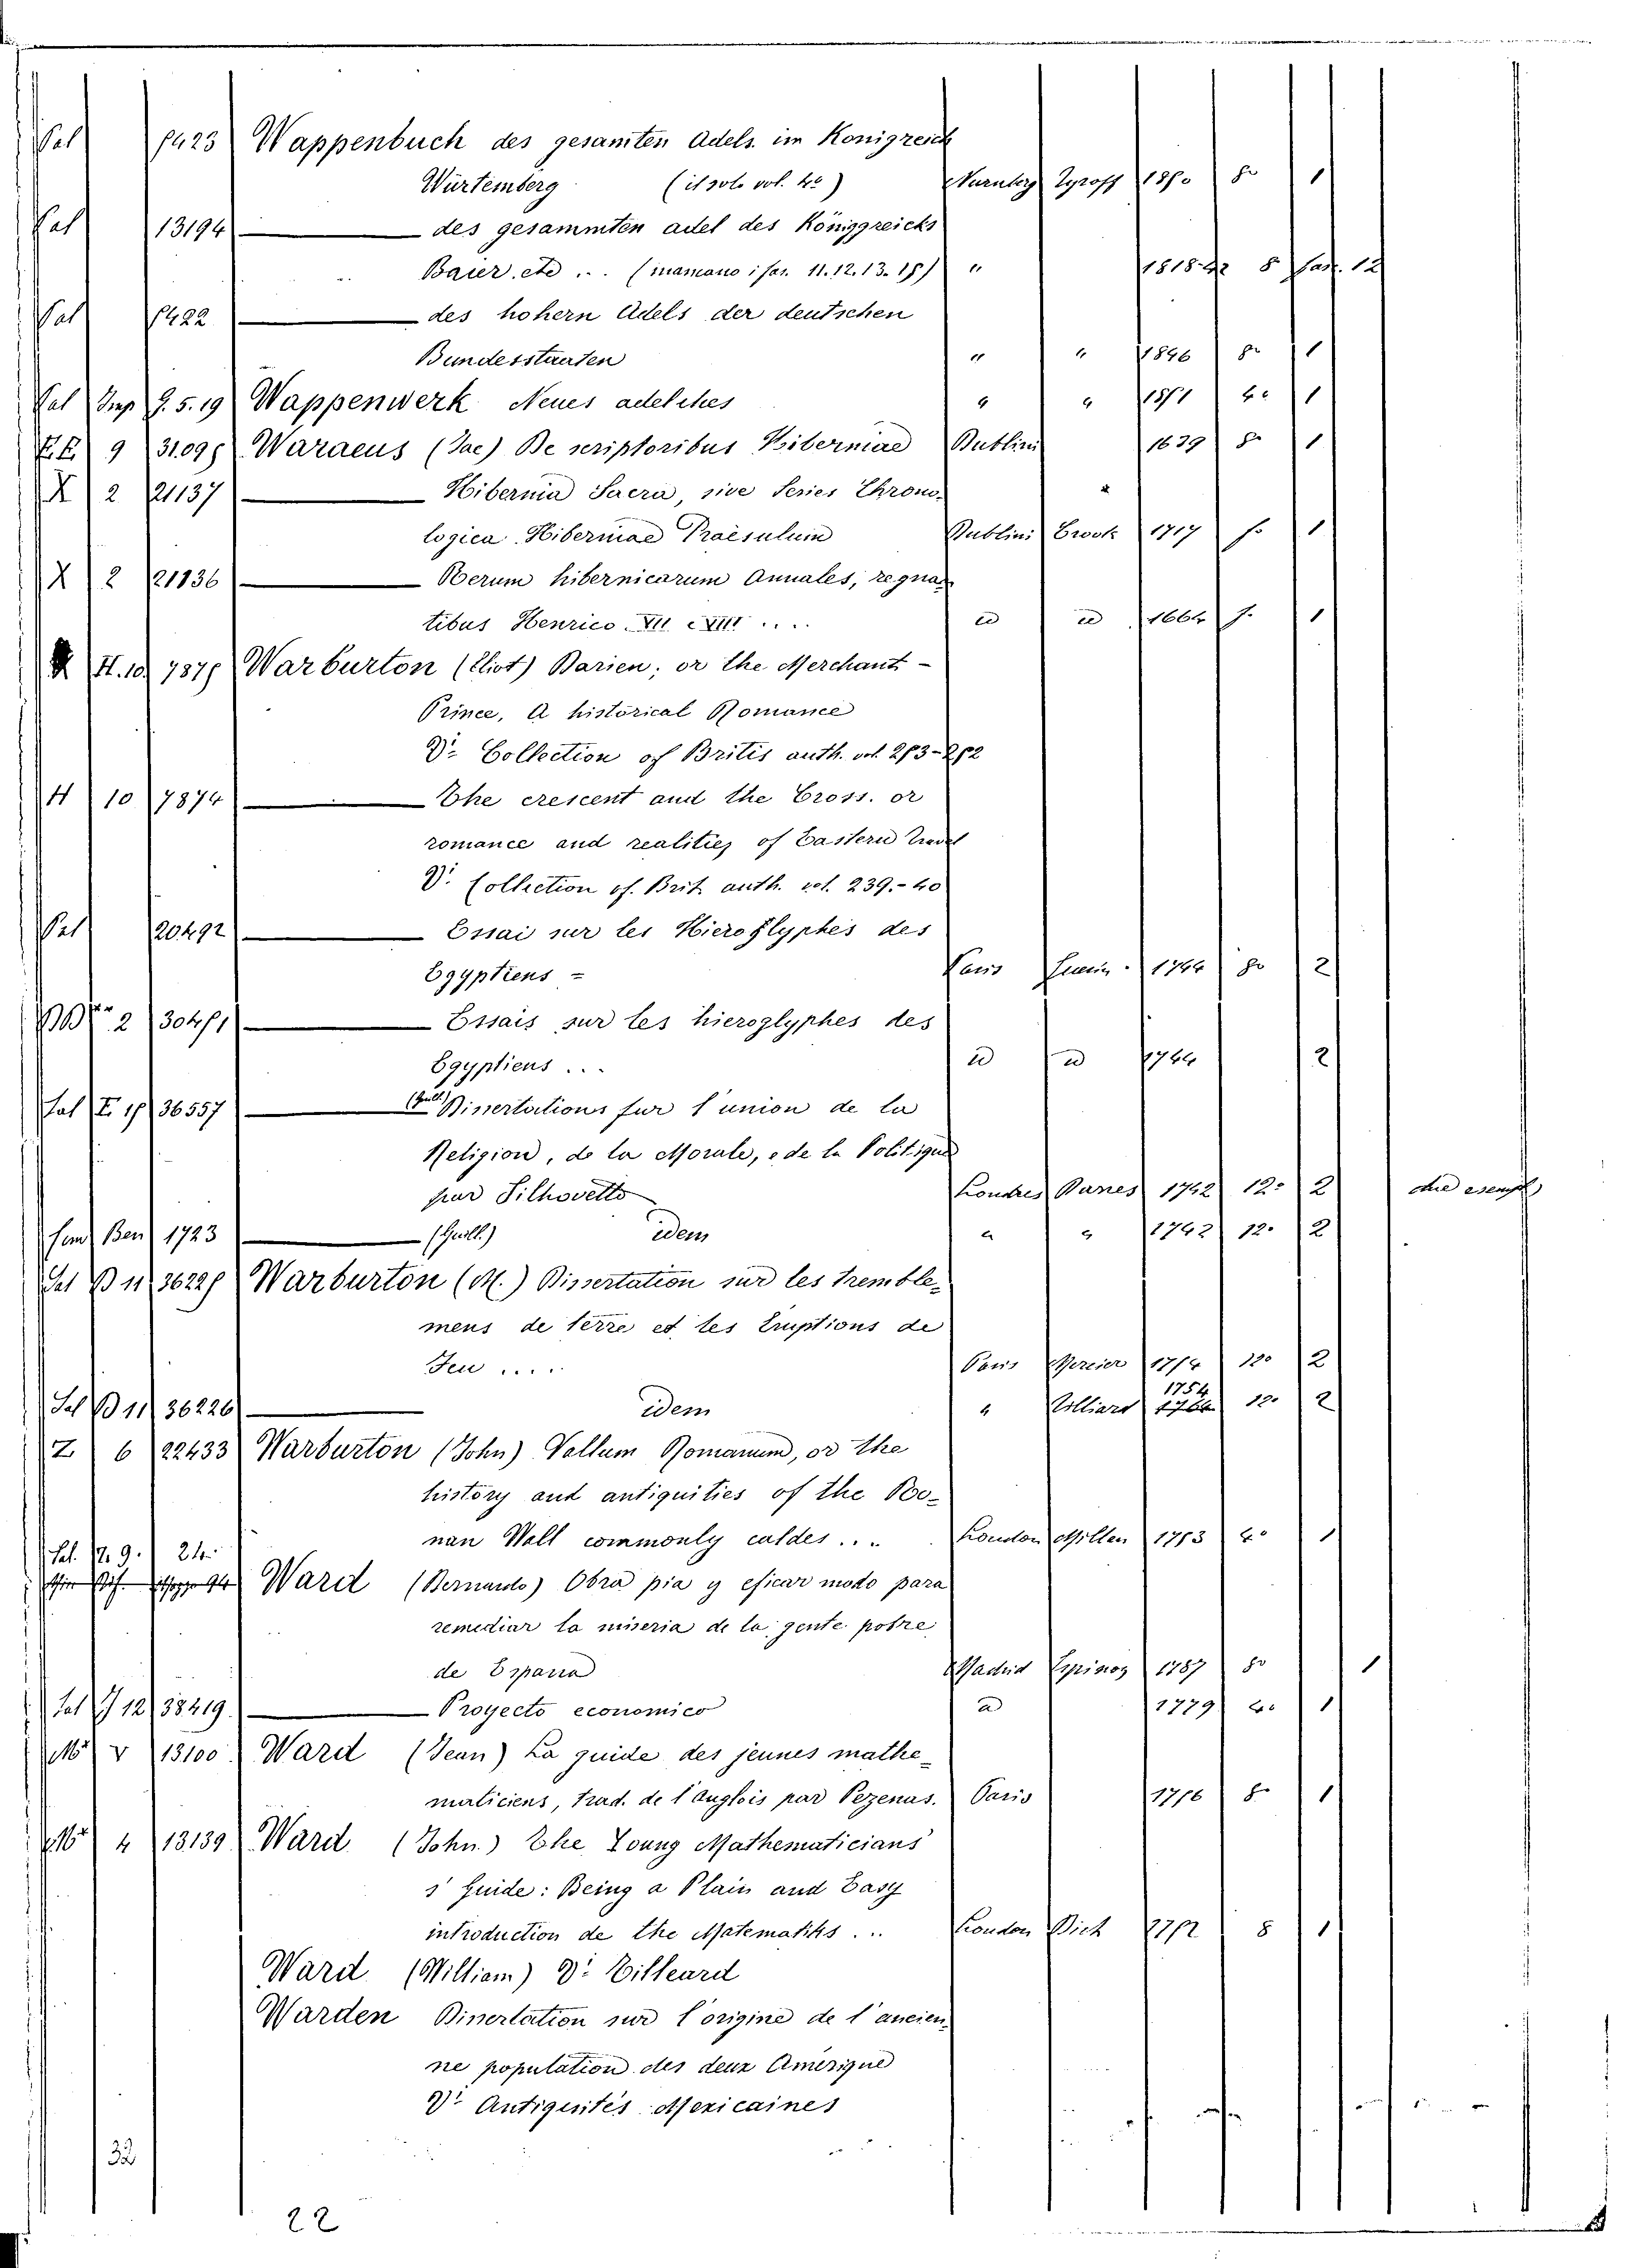 Sal 5423 Wappenbuch des gesamten Adels im Konigreich
Würtemberg (il solo vol. 4º) Nurnberg Tyroff 1850 8º 1
Sal 13194 — des gesammten adel des Königgreichs
Baier. etc ... (mancano i fas. 11. 12. 13. 15) " 8 fas. 12
Sal 5422 — des hohern Adels der deutschen
Bundesstaaten " " 1846 8º 1
Sal Imp 9. 5. 19 Wappenwerk Neues adeliches " " 4º 1
E.E. 9 31095 Waraeus (Jac) De scriptoribus Hiberniae Dublini 1639 8º 1
X 2 21137 — Hibernia Sacra, sive Series Chrono-
logica Hiberniae Praesulum Dublini Crook 1717 fº 1
X 2 21836 — Rerum hibernicarum Annales, regnan
tibus Henrico VII e VIII .... id id 1664 f. 1
H. 10 7875 Warburton (Eliot) Darien; or the Merchant -
Prince, A historical Romance
Vi Collection of Britis auth. vol. 253-252
H 10 7874 — The crescent and the Cross. or
romance and realities of Eastern travel
V. Collection of. Brit auth. vol. 239.-40
Sal 20492 — Essai sur les Hieroglyphes des
Egyptiens = Paris Guerin. 1744 8º 2
2 30451 — Essais sur les hieroglyphes des
Egyptiens ... id id 1744 2
Sal E 15 36557 — (Guill.) Dissertations sur l'union de la
Religion, de la Morale, e de la Politique
par Silhovette Londres Danes 1742 12º 2 due esempl
Ben 1723 — (Guill.) idem " " 1742 12º 2
Sal B 11 36225 Warburton (M.) Dissertation sur les tremble-
mens de terre et les Eruptions de
Feu .... Paris Mercier 1754 12º 2
Sal B 11 36226 — idem " Tilliard 1754 12º 2
Z 6 22433 Warburton (John) Vallum Romanum, or the
history and antiquities of the Ro-
nan Wall commonly caldes ... London Millen 1753 4º 1
Sal. 9. 24.
Ward (Bernardo) Obra pia y eficar modo para
remediar la miseria de la gente potre
de Espana Madrid Espinoz 1787 8º 1
Sal 12 38419 — Proyecto economico id 1779 4º 1
V 13100 Ward (Jean) La guide des jeunes mathe-
maticiens, trad. de l'Anglois par Pezenas. Paris 1756 8º 1
4 13139 Ward (John.) The Young Mathematicians
s' Guide: Being a Plain and Easy
introduction de the Matematiks ... London Bich 1752 8 1
Ward (William) Vi Tilleard
Warden Dissertation sur l'origine de l'ancien-
ne population des deux Amerique
Vi Antiquités Mexicaines
32
22